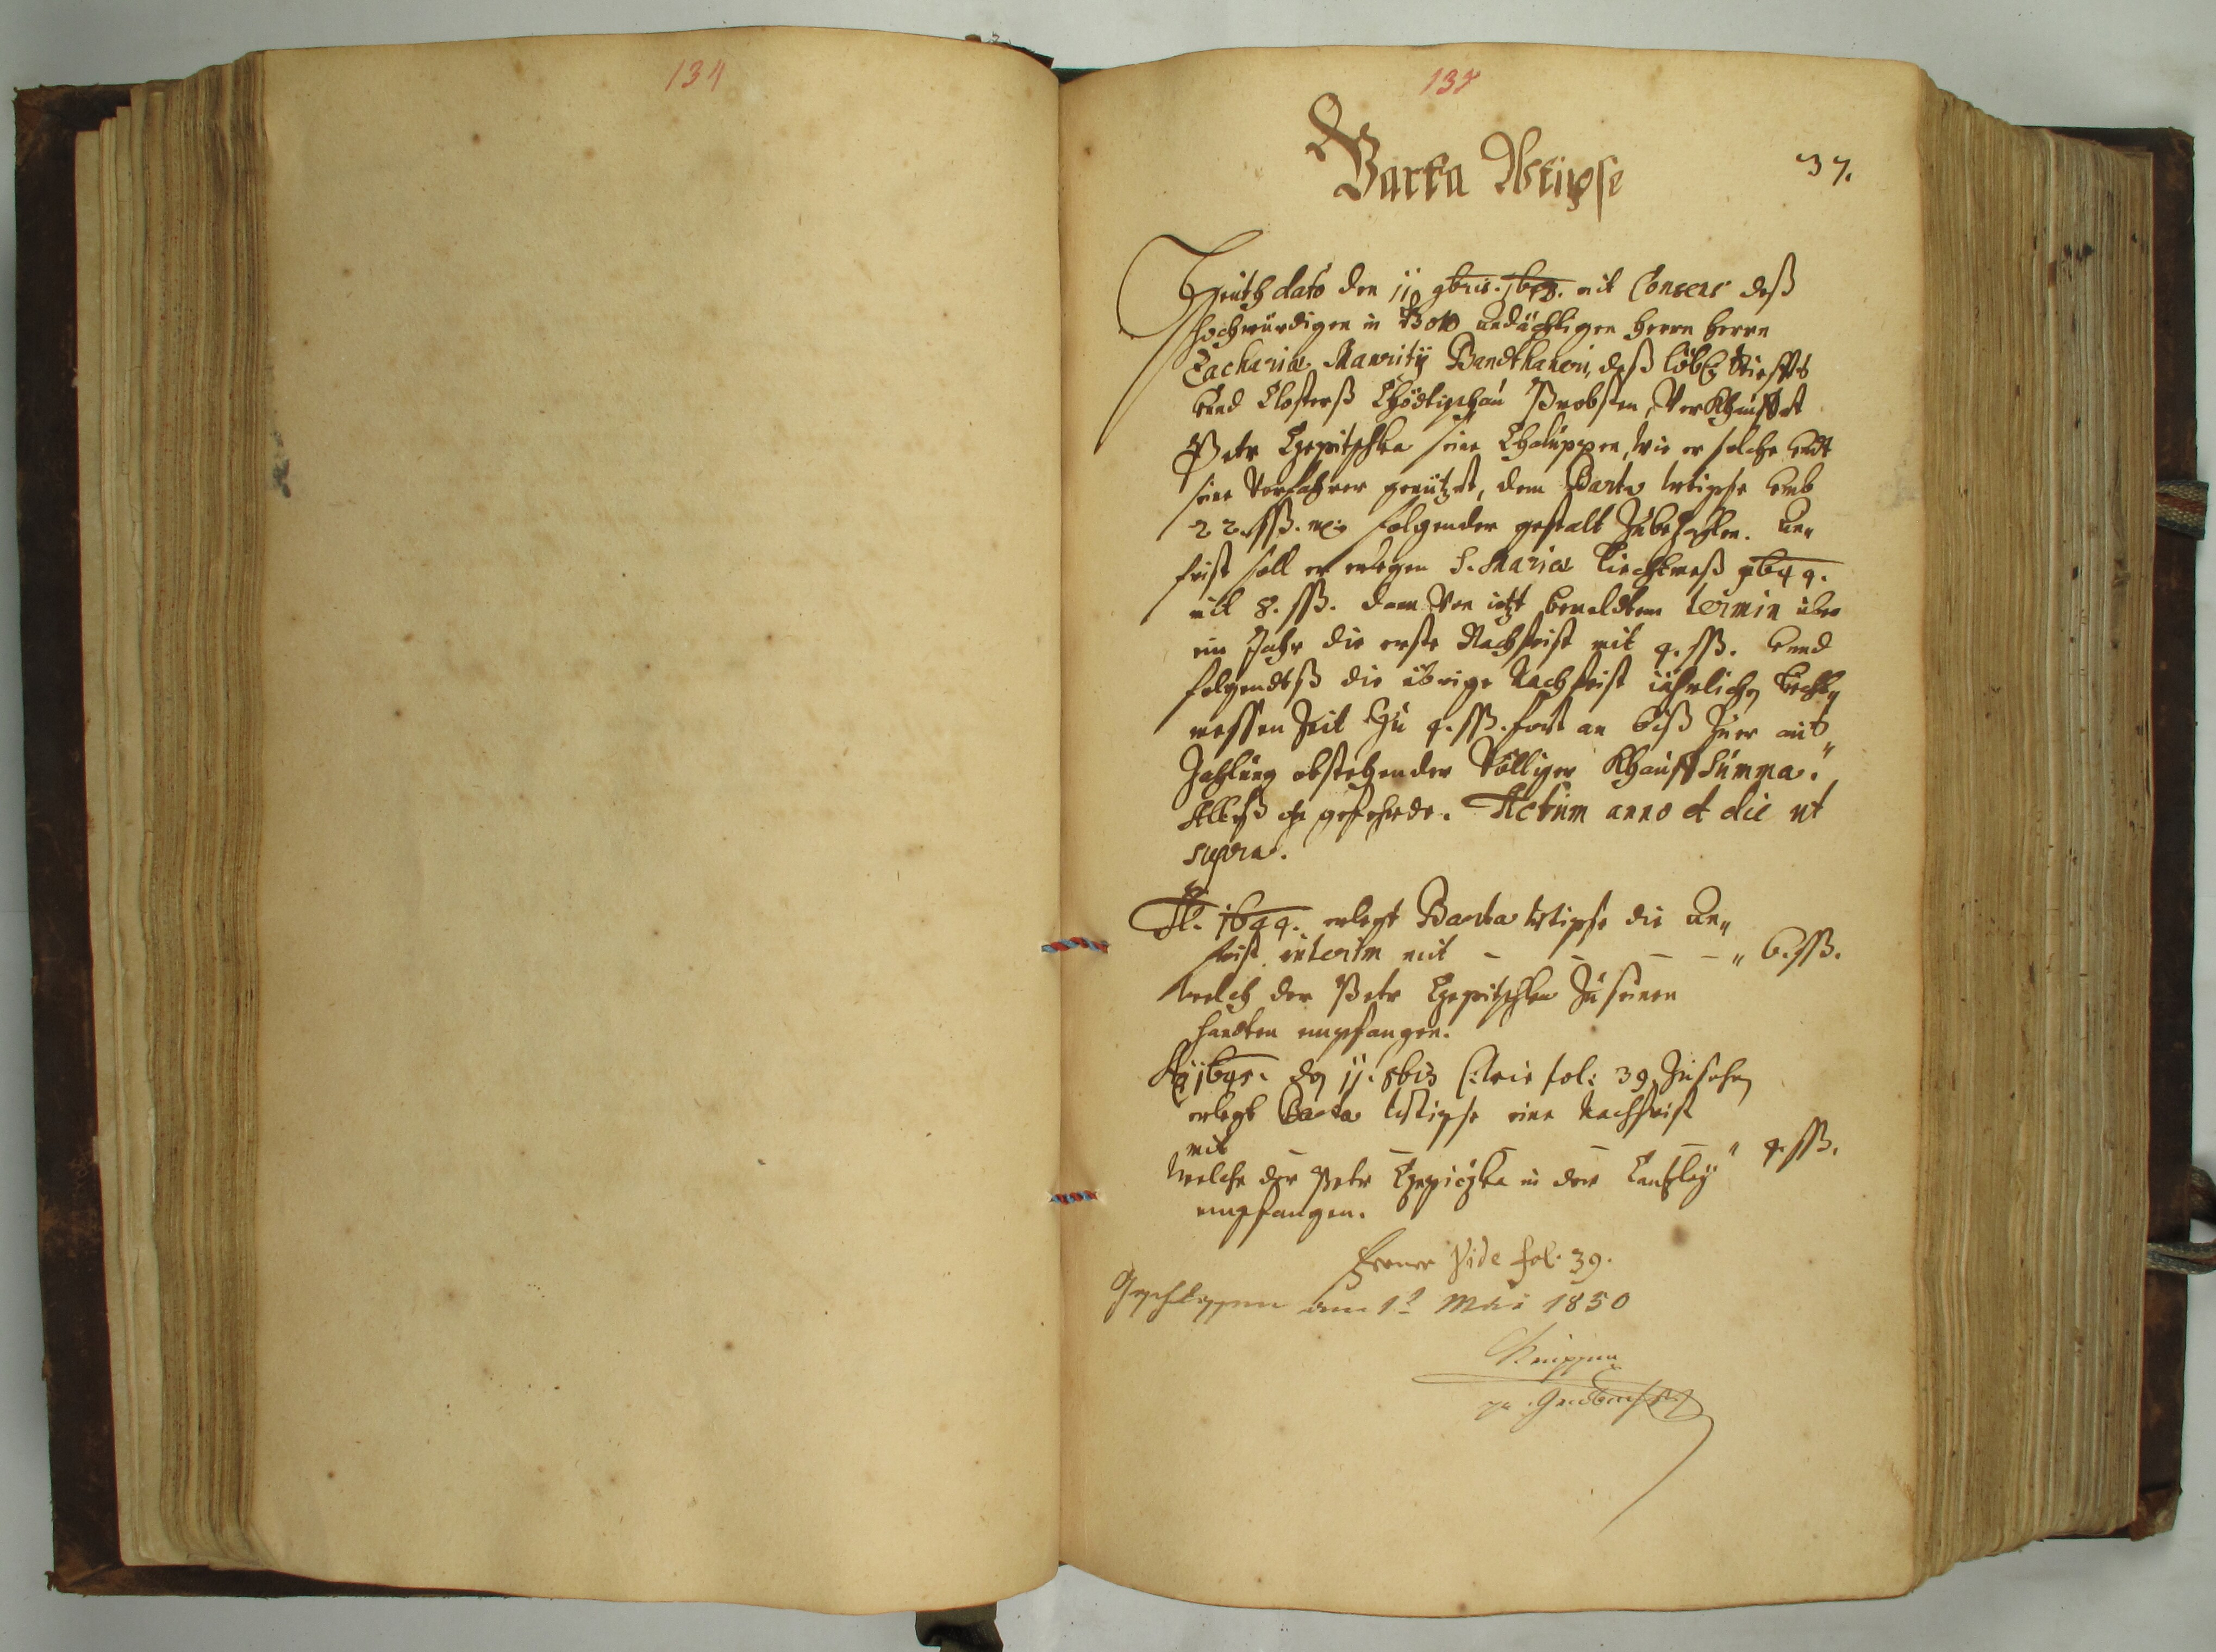 134
135
37.
Barta Wstipse
Heüth dato den 11 9bris. mit Consens deß
hochwürdigen in Gott andächtigen Herrn Herrn
Zachariæ Mauritij Bandthaueri, deß löbl: Stiffts
vnd Closterß Chödtischau Probsten, Verkhaufft
Petr Czepitschka seine Chaluppen, wie er solche vndt
seine Vorfahrer genützet, dem Barta Wstipse vmb
22 ßß. m: folgender gestalt Zubezahlen. An„
frist soll er erlegen S. Mariæ Liechtmeß 1644.
mit 8. ßß. dann Von itzt bemeldtem termin über
ein Jahr die erste Nachfrist mit 4. ßß. vnnd
folgendtß die übrige Nachfrist jährlichen Liecht„
messen Zeit Zu 4. ßß. fort an biß Zu er auß„
Zahlung obstehender Völliger Khauff Summa.
Alleß ohn gefehrde. Actum anno et die ut
supra.
A. 1644. erlegt Barta Wstipse die An„
frist interim mit – – – – „ 6. ßß.
welch der Petr Czepitschka Zu seinen
handten empfangen.
Aō 1645. den 11. 8bris (: wie fol: 39 Zusehen
erlegt Barta Wstipse eine Nachfrist
mit – – – – „ 4. ßß.
Welche der Petr Czepiczka in der Cantzley
empfangen.
Ferner Vide fol: 39.
Geschlossen am 1t Mai 1850